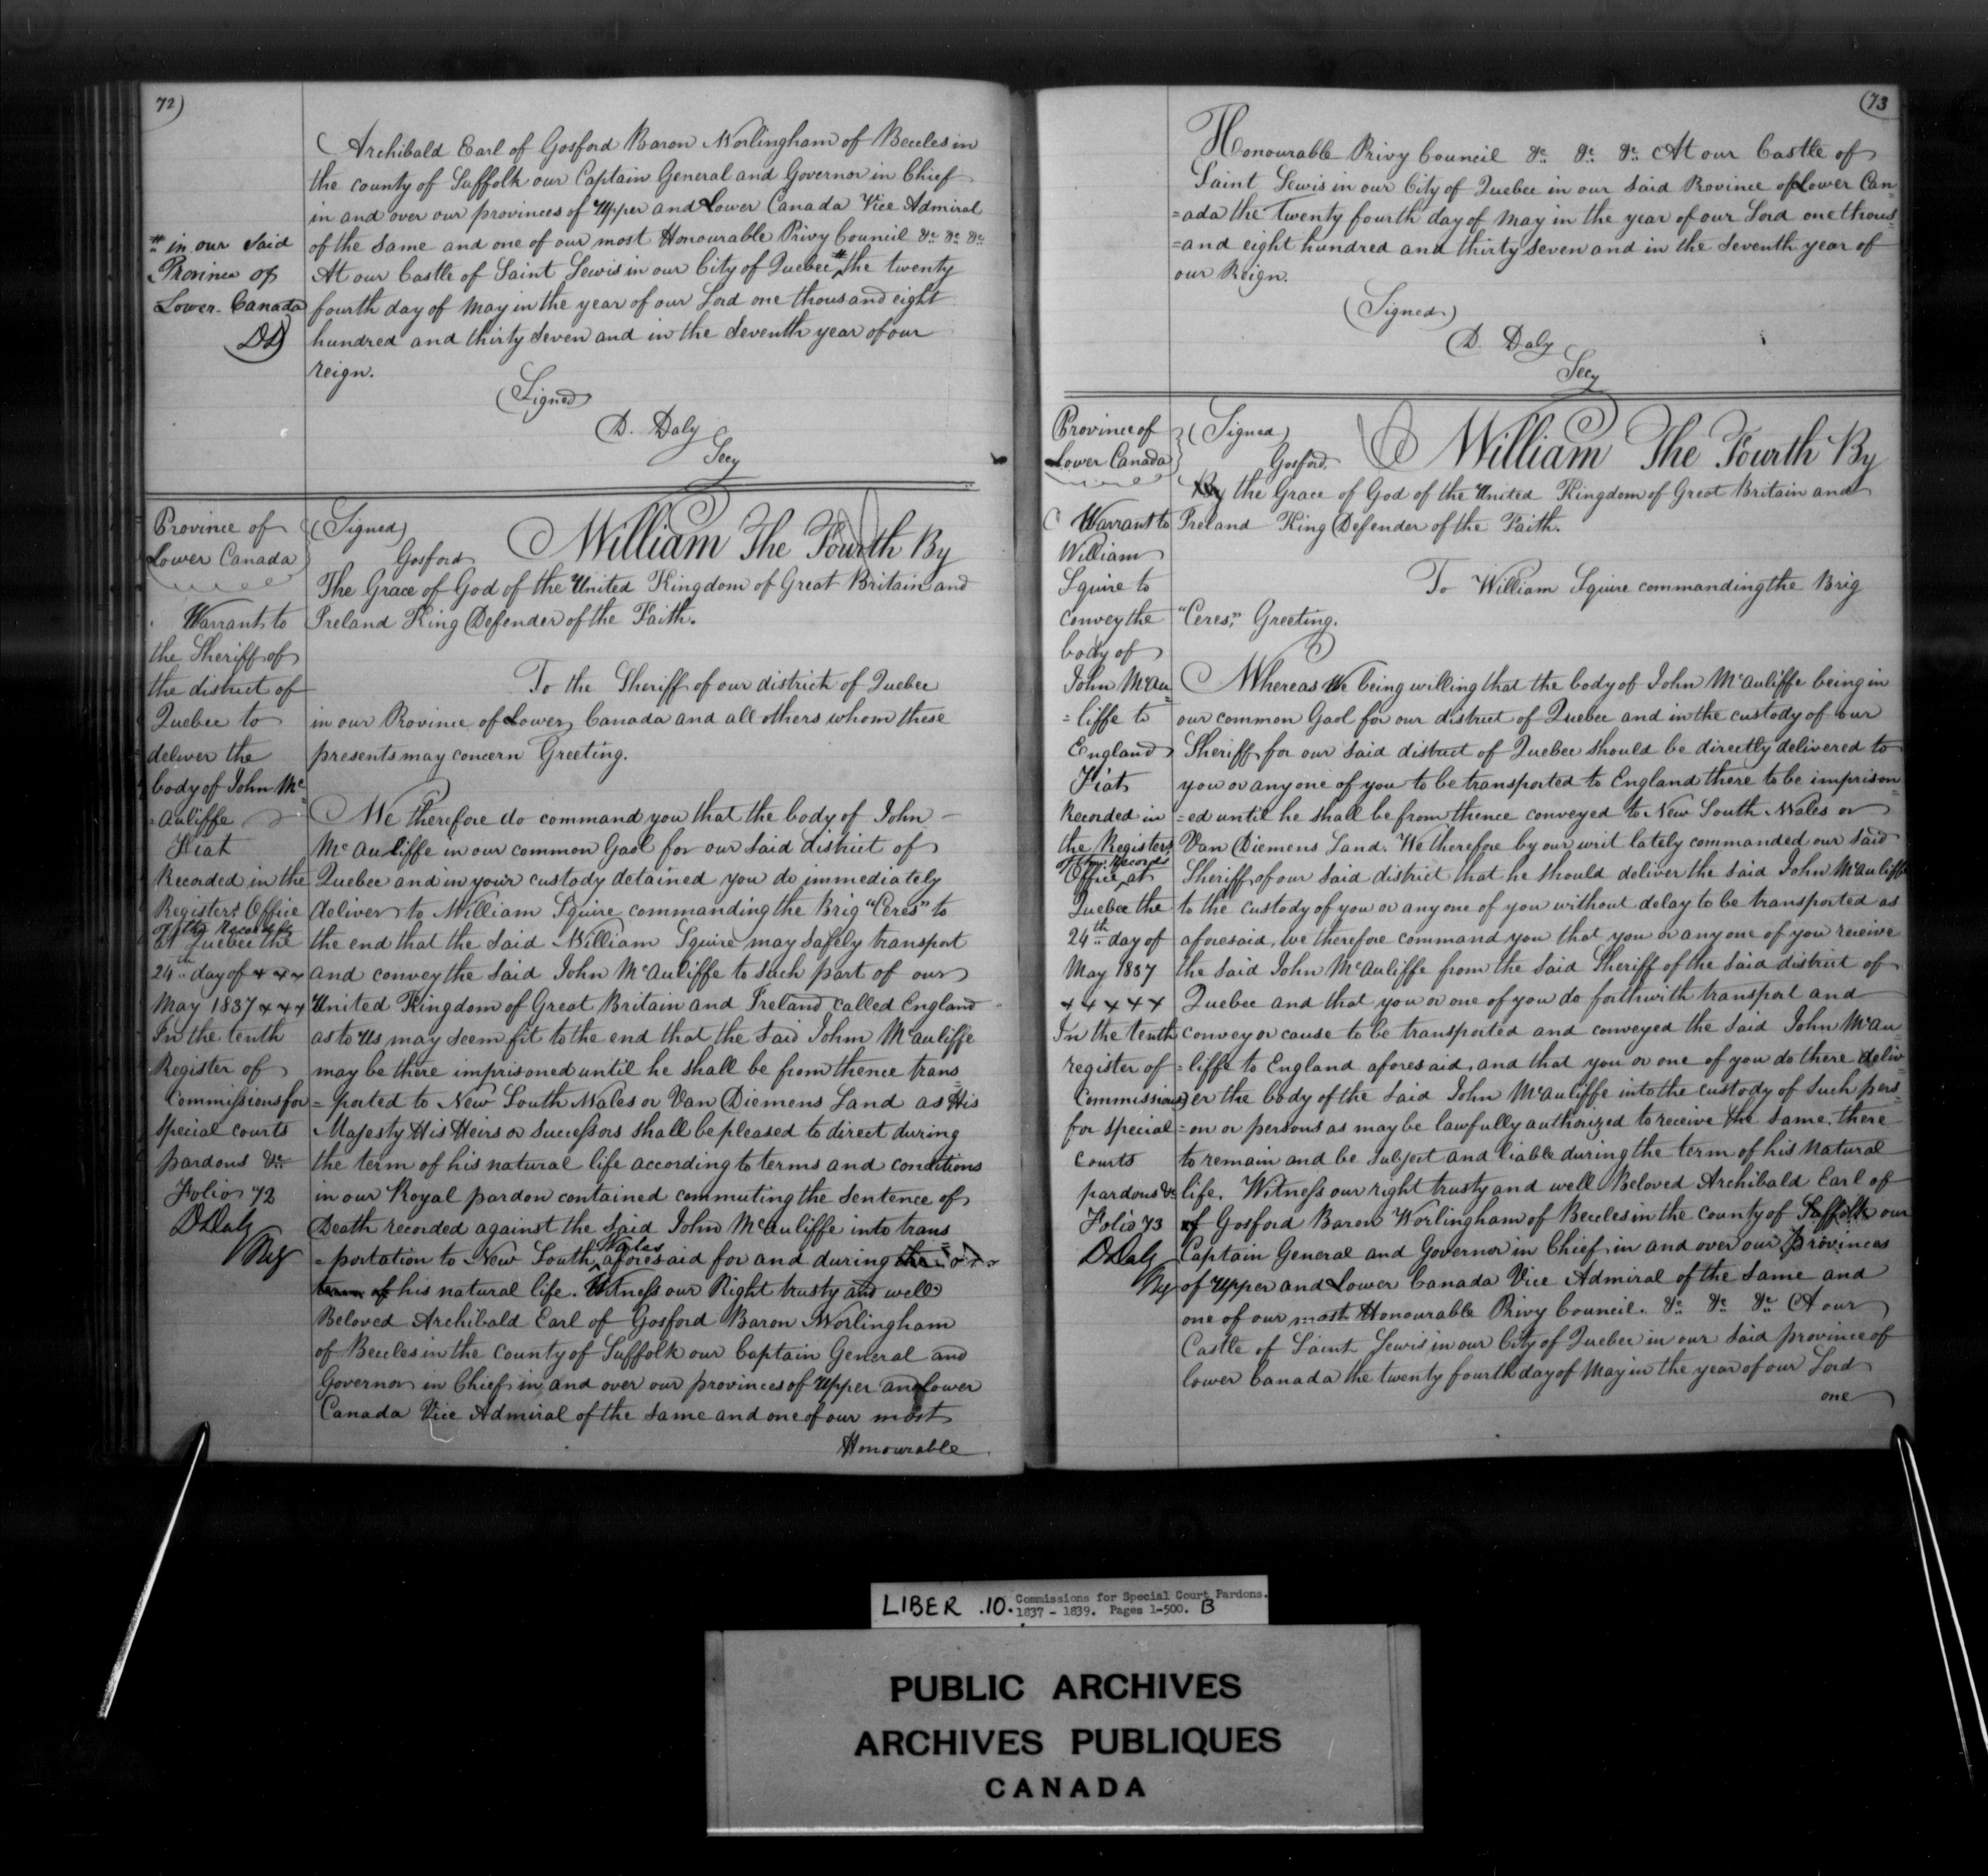 72)
Archibald Earl of Gosford Baron Worlingham of Beccles in
the county of Suffolk our Captain General and Governor in Chief
in and over our provinces of Upper and Lower Canada Vice Admiral
of the Same and one of our most Honourable Privy Council &c &c &c
At our Castle of Saint Lewis in our City of Quebec # the twenty
fourth day of May in the year of our Lord one thousand eight
hundred and thirty Seven and in the Seventh year of our
reign.
# in our Said
Province of
Lower Canada
DD
(Signed)
D. Daly
Secy
Province of
Lower Canada
Warrant to
the Sheriff of
the district of
Quebec to
deliver the
body of John Mc
=Auliffe
Fiat
Recorded in the
Registers Office
of the Records
at Quebec the
24th day of x x x
May 1837 x x x
In the tenth
Register of
Commissions for
Special Courts
pardons &c
Folio 72
D Daly
Reg
(Signed)
Gosford
William The Fourth By
The Grace of God of the United Kingdom of Great Britain and
Ireland King Defender of the Faith.
To the Sheriff of our district of Quebec
in our Province of Lower Canada and all others whom these
presents may concern Greeting.
We therefore do command you that the body of John
McAuliffe in our common Gaol for our Said district of
Quebec and in your custody detained you do immediately
deliver to William Squire commanding the Brig "Ceres" to
the end that the Said William Squire may Safely transport
and convey the Said John McAuliffe to Such part of our
United Kingdom of Great Britain and Ireland called England
as to Us may Seem fit to the end that the Said John McAuliffe
may be there imprisoned until he shall be from thence trans
=ported to New South Wales or Van Diemens Land as His
Majesty His Heirs or Successors shall be pleased to direct during
the term of his natural life according to terms and conditions
in our Royal pardon contained commuting the Sentence of
Death recorded against the Said John McAuliffe into trans
=portation to New South Wales aforesaid for and during the
term of his natural life. Witness our Right trusty and well
Beloved Archibald Earl of Gosford Baron Worlingham
of Beccles in the county of Suffolk our Captain General and
Governor in Chief in and over our provinces of Upper and Lower
Canada Vice Admiral of the Same and one of our most
Honourable
(73
Honourable Privy Council &c &c &c At our Castle of
Saint Lewis in our City of Quebec in our Said Province of Lower Can=
=ada the twenty fourth day of May in the year of our Lord one thous=
=and eight hundred and thirty Seven and in the Seventh year of
our Reign.
(Signed)
D. Daly
Secy
Province of
Lower Canada
Warrant to
William
Squire to
convey the
body of
John McAu=
=liffe to
England
Fiat
Recorded in
the Registers
of the Records
Office at
Quebec the
24th day of
May 1837
x x x x x
In the tenth
register of
Commissions
for Special
Courts
pardons &c
Folio 73
D Daly
Reg
(Signed)
Gosford
William The Fourth By
By the Grace of God of the United Kingdom of Great Britain and
Ireland King Defender of the Faith.
To William Squire commanding the Brig
"Ceres", Greeting.
Whereas We being willing that the body of John McAuliffe being in
our common Gaol for our district of Quebec and in the custody of our
Sheriff for our Said district of Quebec Should be directly delivered to
you or any one of you to be transported to England there to be imprison=
=ed until he shall be from thence conveyed to New South Wales or
Van Diemens Land. We therefore by our writ lately commanded our Said
Sheriff of our Said district that he should deliver the Said John McAuliffe
to the custody of you or any one of you without delay to be transported as
aforesaid, we therefore command you that you or any one of you receive
the Said John McAuliffe from the Said Sheriff of the Said district of
Quebec and that you or one of you do forthwith transport and
convey or cause to be transported and conveyed the Said John McAu=
=liffe to England aforesaid, and that you or one of you do there deliv=
er the body of the Said John McAuliffe into the custody of Such pers=
=on or persons as may be lawfully authorized to receive the Same. there
to remain and be Subject and liable during the term of his natural
life. Witness our right trusty and well Beloved Archibald Earl of
of Gosford Baron Worlingham of Beccles in the county of Suffolk our
Captain General and Governor in Chief in and over our provinces
of Upper and Lower Canada Vice Admiral of the Same and
one of our most Honourable Privy Council. &c &c &c At our
Castle of Saint Lewis in our City of Quebec in our Said province of
lower Canada the twenty fourth day of May in the year of our Lord
one
LIBER .10. Commissions for Special Court Pardons.
1837 - 1839. Pages 1-500. B
PUBLIC ARCHIVES
ARCHIVES PUBLIQUES
CANADA